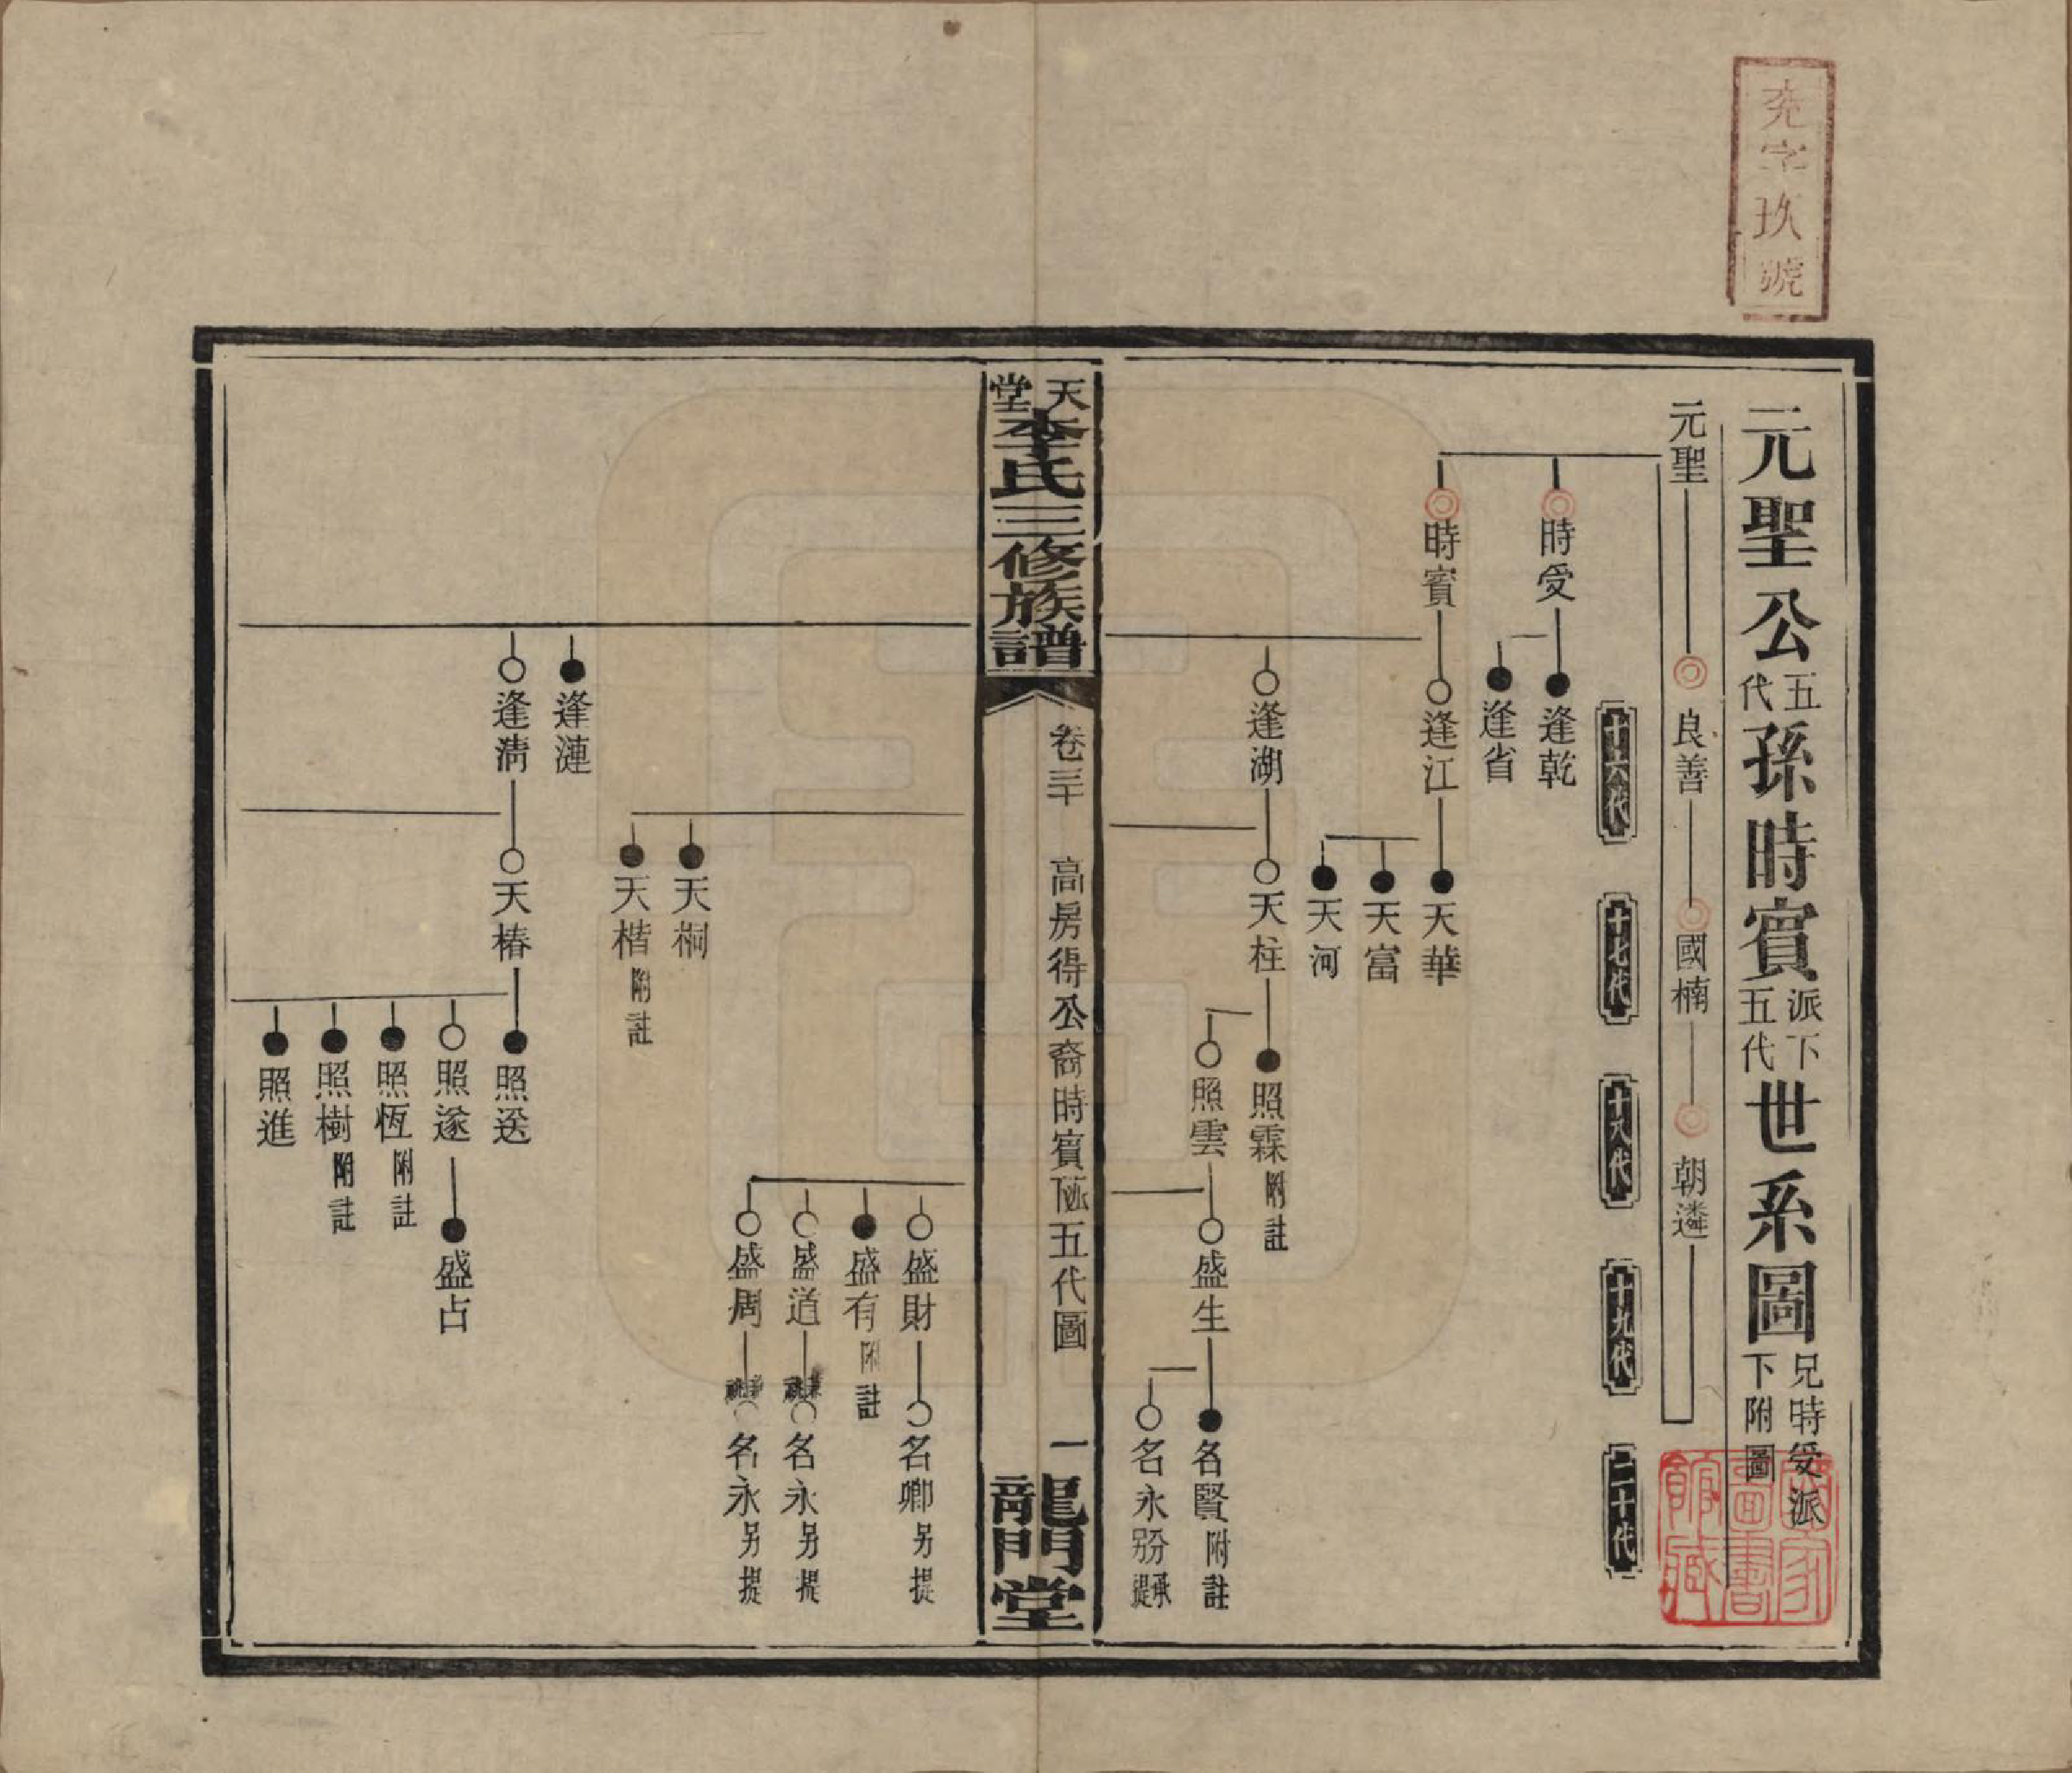 堯字玖號
元聖公五代孫時賓派下五代世系圖兄時受派下附圖
元聖 良善 國楠 朝遴
十六代
十七代
十八代
十九代
二十代
時受 逢乾
逢省
時賓 逢江 天華
天富
天河
逢湖 天柱 照霖附註
照雲 盛生 名賢附註
名永
天堂李氏三修族譜
卷三十 高房得公裔時賓派下五代圖 一
龍門堂
盛財 名卿另提
盛有附註
盛道 名永另提
盛周 名永另提
天桐
天楷附註
逢漣
逢清 天椿 照送
照遂 盛占
照恆附註
照樹附註
照進
圖書館藏